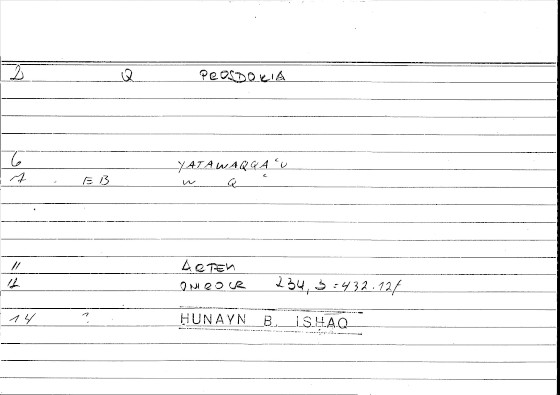 2 Q PROSDOKIA
6 YATAWAQQA'U
7 EB W Q '
11 ARTEM
12 ONIROCR 234, 3 = 432.12f
14 ? HUNAYN B. ISHAQ